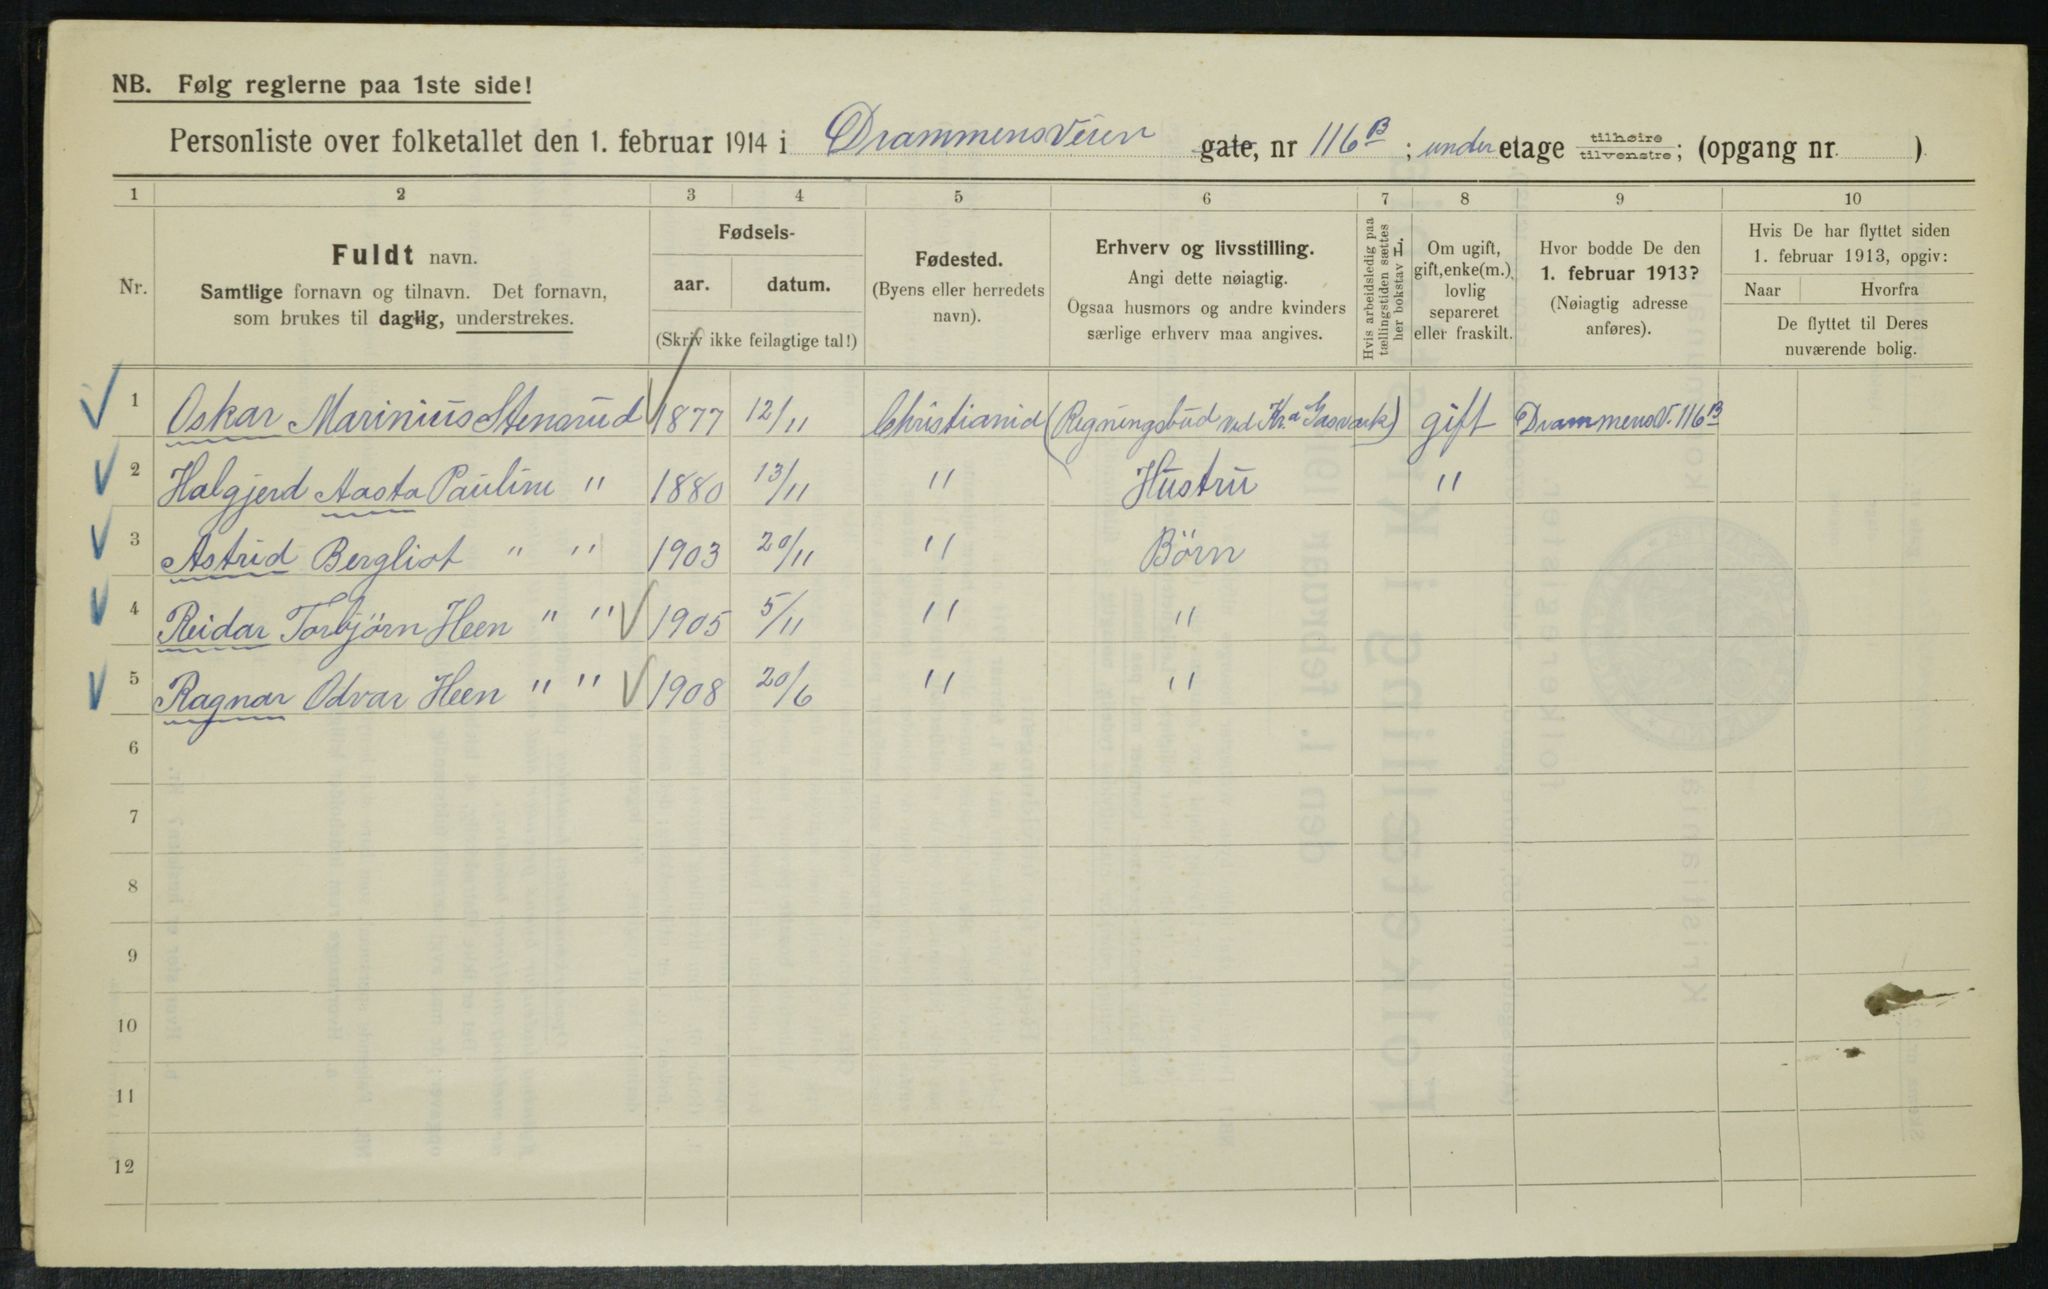 NB. Følg reglerne paa 1ste side!
Personliste over folketallet den 1. februar 1914 i Drammensveien gate, nr 116B; under etage tilhøire / tilvenstre; (opgang nr. )
1 2 3 4 5 6 7 8 9 10
Nr.
Fuldt navn.
Samtlige fornavn og tilnavn. Det fornavn,
som brukes til daglig, understrekes.
Fødsels-
aar. datum.
(Skriv ikke feilagtige tal!)
Fødested.
(Byens eller herredets
navn).
Erhverv og livsstilling.
Angi dette nøiagtig.
Ogsaa husmors og andre kvinders
særlige erhverv maa angives.
Hvis arbeidsledig paa
tællingstiden sættes
her bokstav L.
Om ugift,
gift, enke(m.),
lovlig
separeret
eller fraskilt.
Hvor bodde De den
1. februar 1913?
(Nøiagtig adresse
anføres).
Hvis De har flyttet siden
1. februar 1913, opgiv:
Naar Hvorfra
De flyttet til Deres
nuværende bolig.
1 Oskar Marinius Stensrud 1877 12/11 Christiania (Regningsbud ved Kr.a Gasverk) gift Drammensv. 116B
2 Halgjerd Aasta Pauline " 1880 13/11 " Hustru "
3 Astrid Bergliot " " 1903 20/11 " Börn
4 Reidar Torbjörn Heen " " 1905 5/11 " "
5 Ragnar Odvar Heen " " 1908 20/6 " "
6
7
8
9
10
11
12